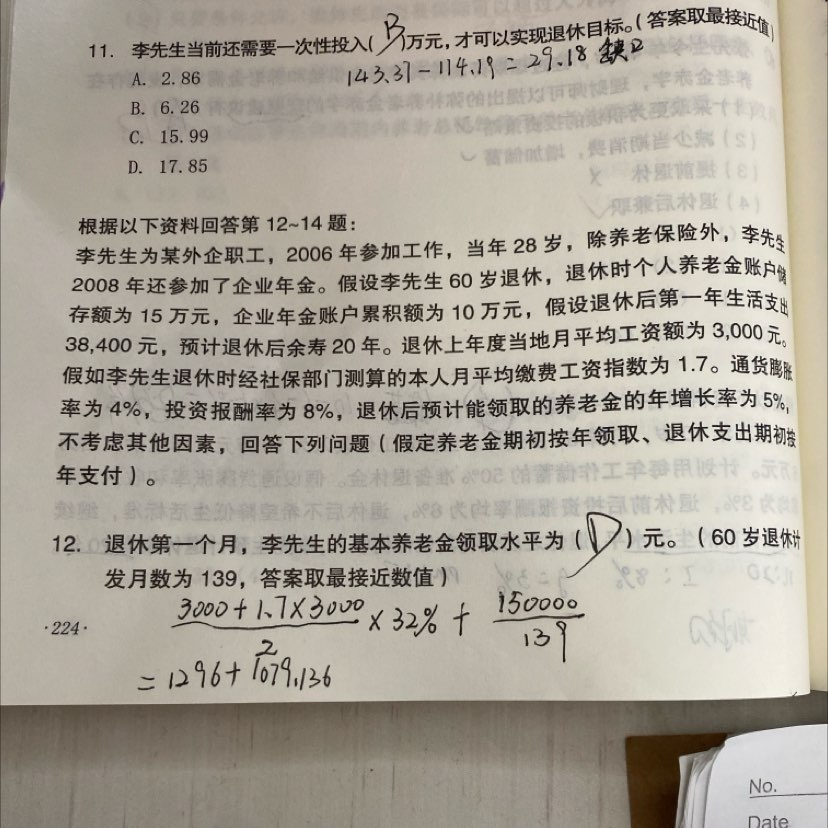 11. 李先生当前还需要一次性投入(B)万元，才可以实现退休目标。(答案取最接近值)
143.37-114.19=29.18 缺口
A. 2.86
B. 6.26
C. 15.99
D. 17.85
根据以下资料回答第12~14题：
李先生为某外企职工，2006年参加工作，当年28岁，除养老保险外，李先生
2008年还参加了企业年金。假设李先生60岁退休，退休时个人养老金账户储
存额为15万元，企业年金账户累积额为10万元，假设退休后第一年生活支出
38,400元，预计退休后余寿20年。退休上年度当地月平均工资额为3,000元。
假如李先生退休时经社保部门测算的本人月平均缴费工资指数为1.7。通货膨胀
率为4%，投资报酬率为8%，退休后预计能领取的养老金的年增长率为5%，
不考虑其他因素，回答下列问题（假定养老金期初按年领取、退休支出期初按
年支付）。
12. 退休第一个月，李先生的基本养老金领取水平为(D)元。（60岁退休计
发月数为139，答案取最接近数值）
3000+1.7×3000 150000
×32% +
2 139
=1296+1079.136
·224·
No.
Date